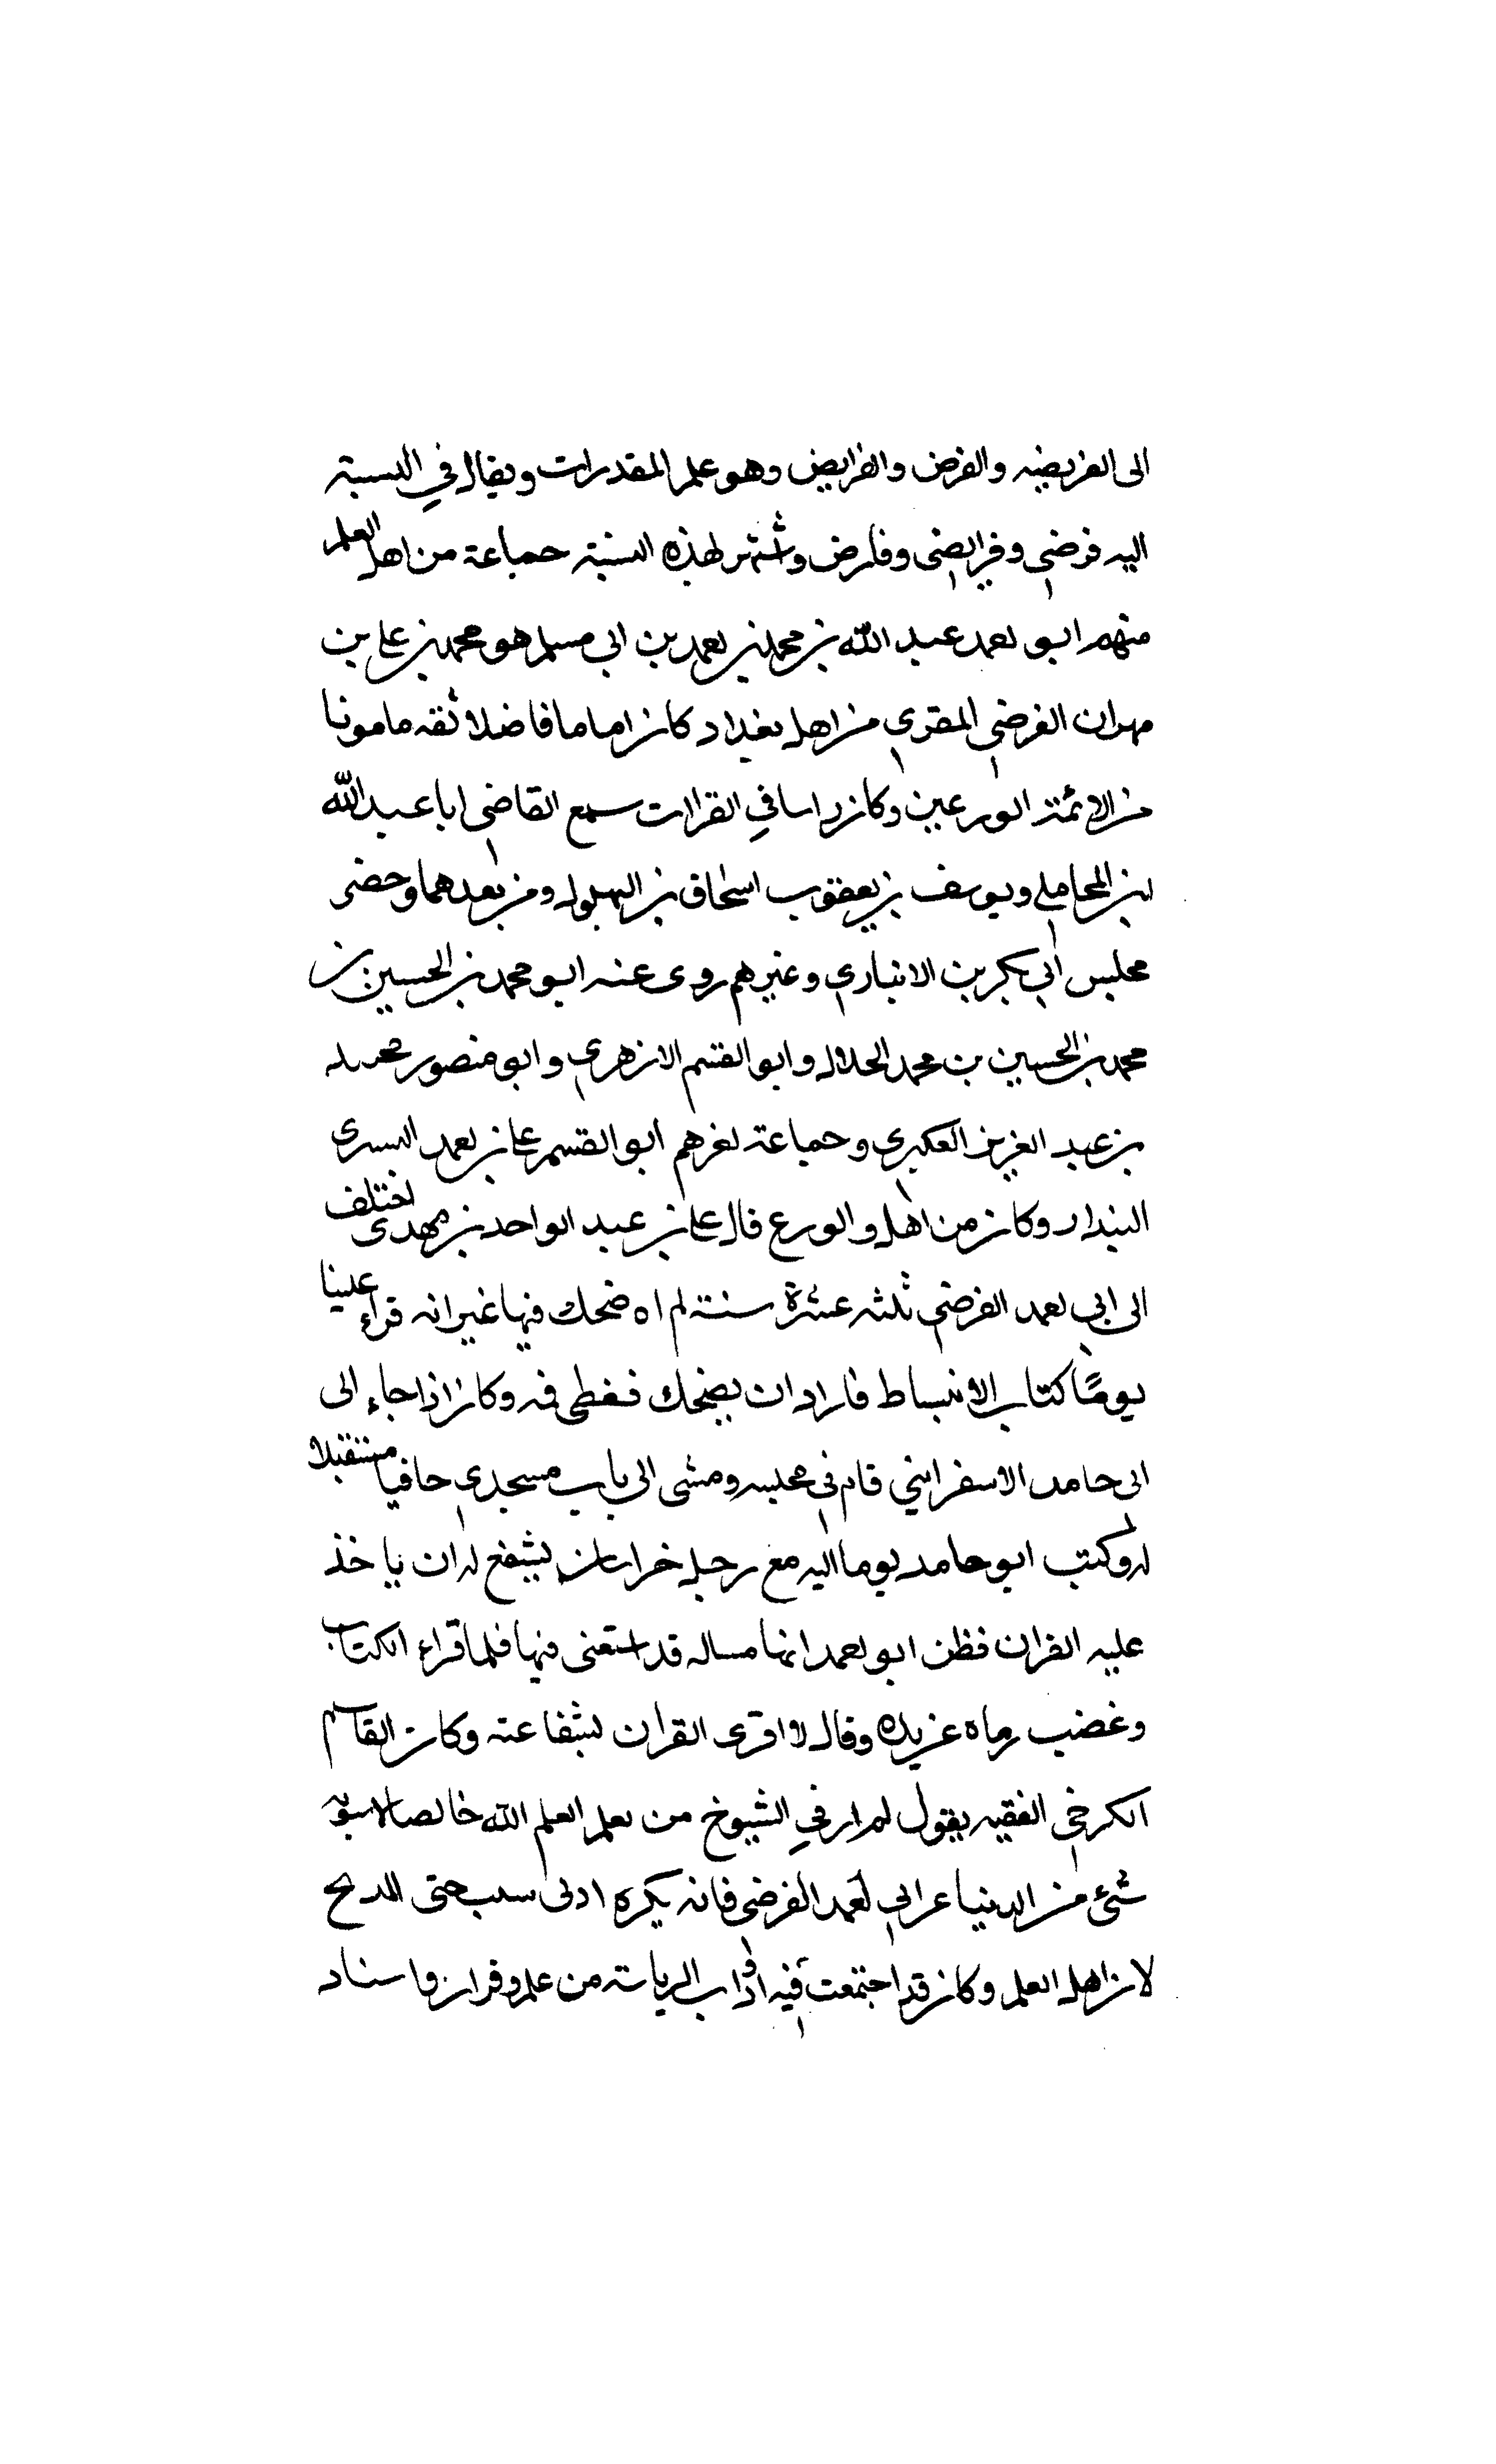 الى الفريضه والفرض والفرايض وهو علم المقدرات ويقال في النسبة
اليه فرضي وفرايضي وفارض واشتهر لهذه النسبة جماعة من اهل العلم
منهم ابو احمد عبد الله بن محمد بن احمد بن ابي مسلم هو محمد بن علي بن
مهران الفرضي المقرى من اهل بغداد كان اماما فاضلا ثقه مامونا
من الائمة الورعين وكان راسا في القراات سمع القاضي ابا عبد الله
بن المحاملي ويوسف بن يعقوب اسحاق بن البهلول ومن بعدهما وحضر
مجلس ابي بكر بن الانباري وغيرهم روى عنه ابو محمد بن الحسين بن
محمد بن الحسين بن محمد الخلال وابو القسم الازهري وابو منصور محمد
بن عبد العزيز العكبري وجماعة اخرهم ابو القسم علي بن احمد البسرى
البندار وكان من اهل والورع قال علي بن عبد الواحد بن مهدى اختلف
الى ابي احمد الفرضي ثلثه عشرة سنة لم اه ضحك فيها غير انه قراء علينا
يومًا كتاب الانبساط فاراد ان يضحك فغطى فه وكان اذا جاء الى
ابى حامد الاسفرايني قام في مجلسه ومشى الى باب مسجدي حافيا مستقبلا
له وكتب ابو حامد يوما اليه مع رجل خراسان يشفع له ان ياخذ
عليه القران فظن ابو احمد انها مساله قد استغنى فيها فلما قراء الكتاب
وغضب رماه عن يده وقال لا اقرى القران بشفاعته وكان القاسم
الكرخي الفقيه يقول لم ار في الشيوخ من يعلم العلم الله خالصا لا يشوبه
شئ من الدنيا غير ابي احمد الفرضي فانه يكره ادنى سبب حتى المدح
لان اهل العلم وكان قد اجتمعت فيه ادواب الرياسته من علم وقران واسناد